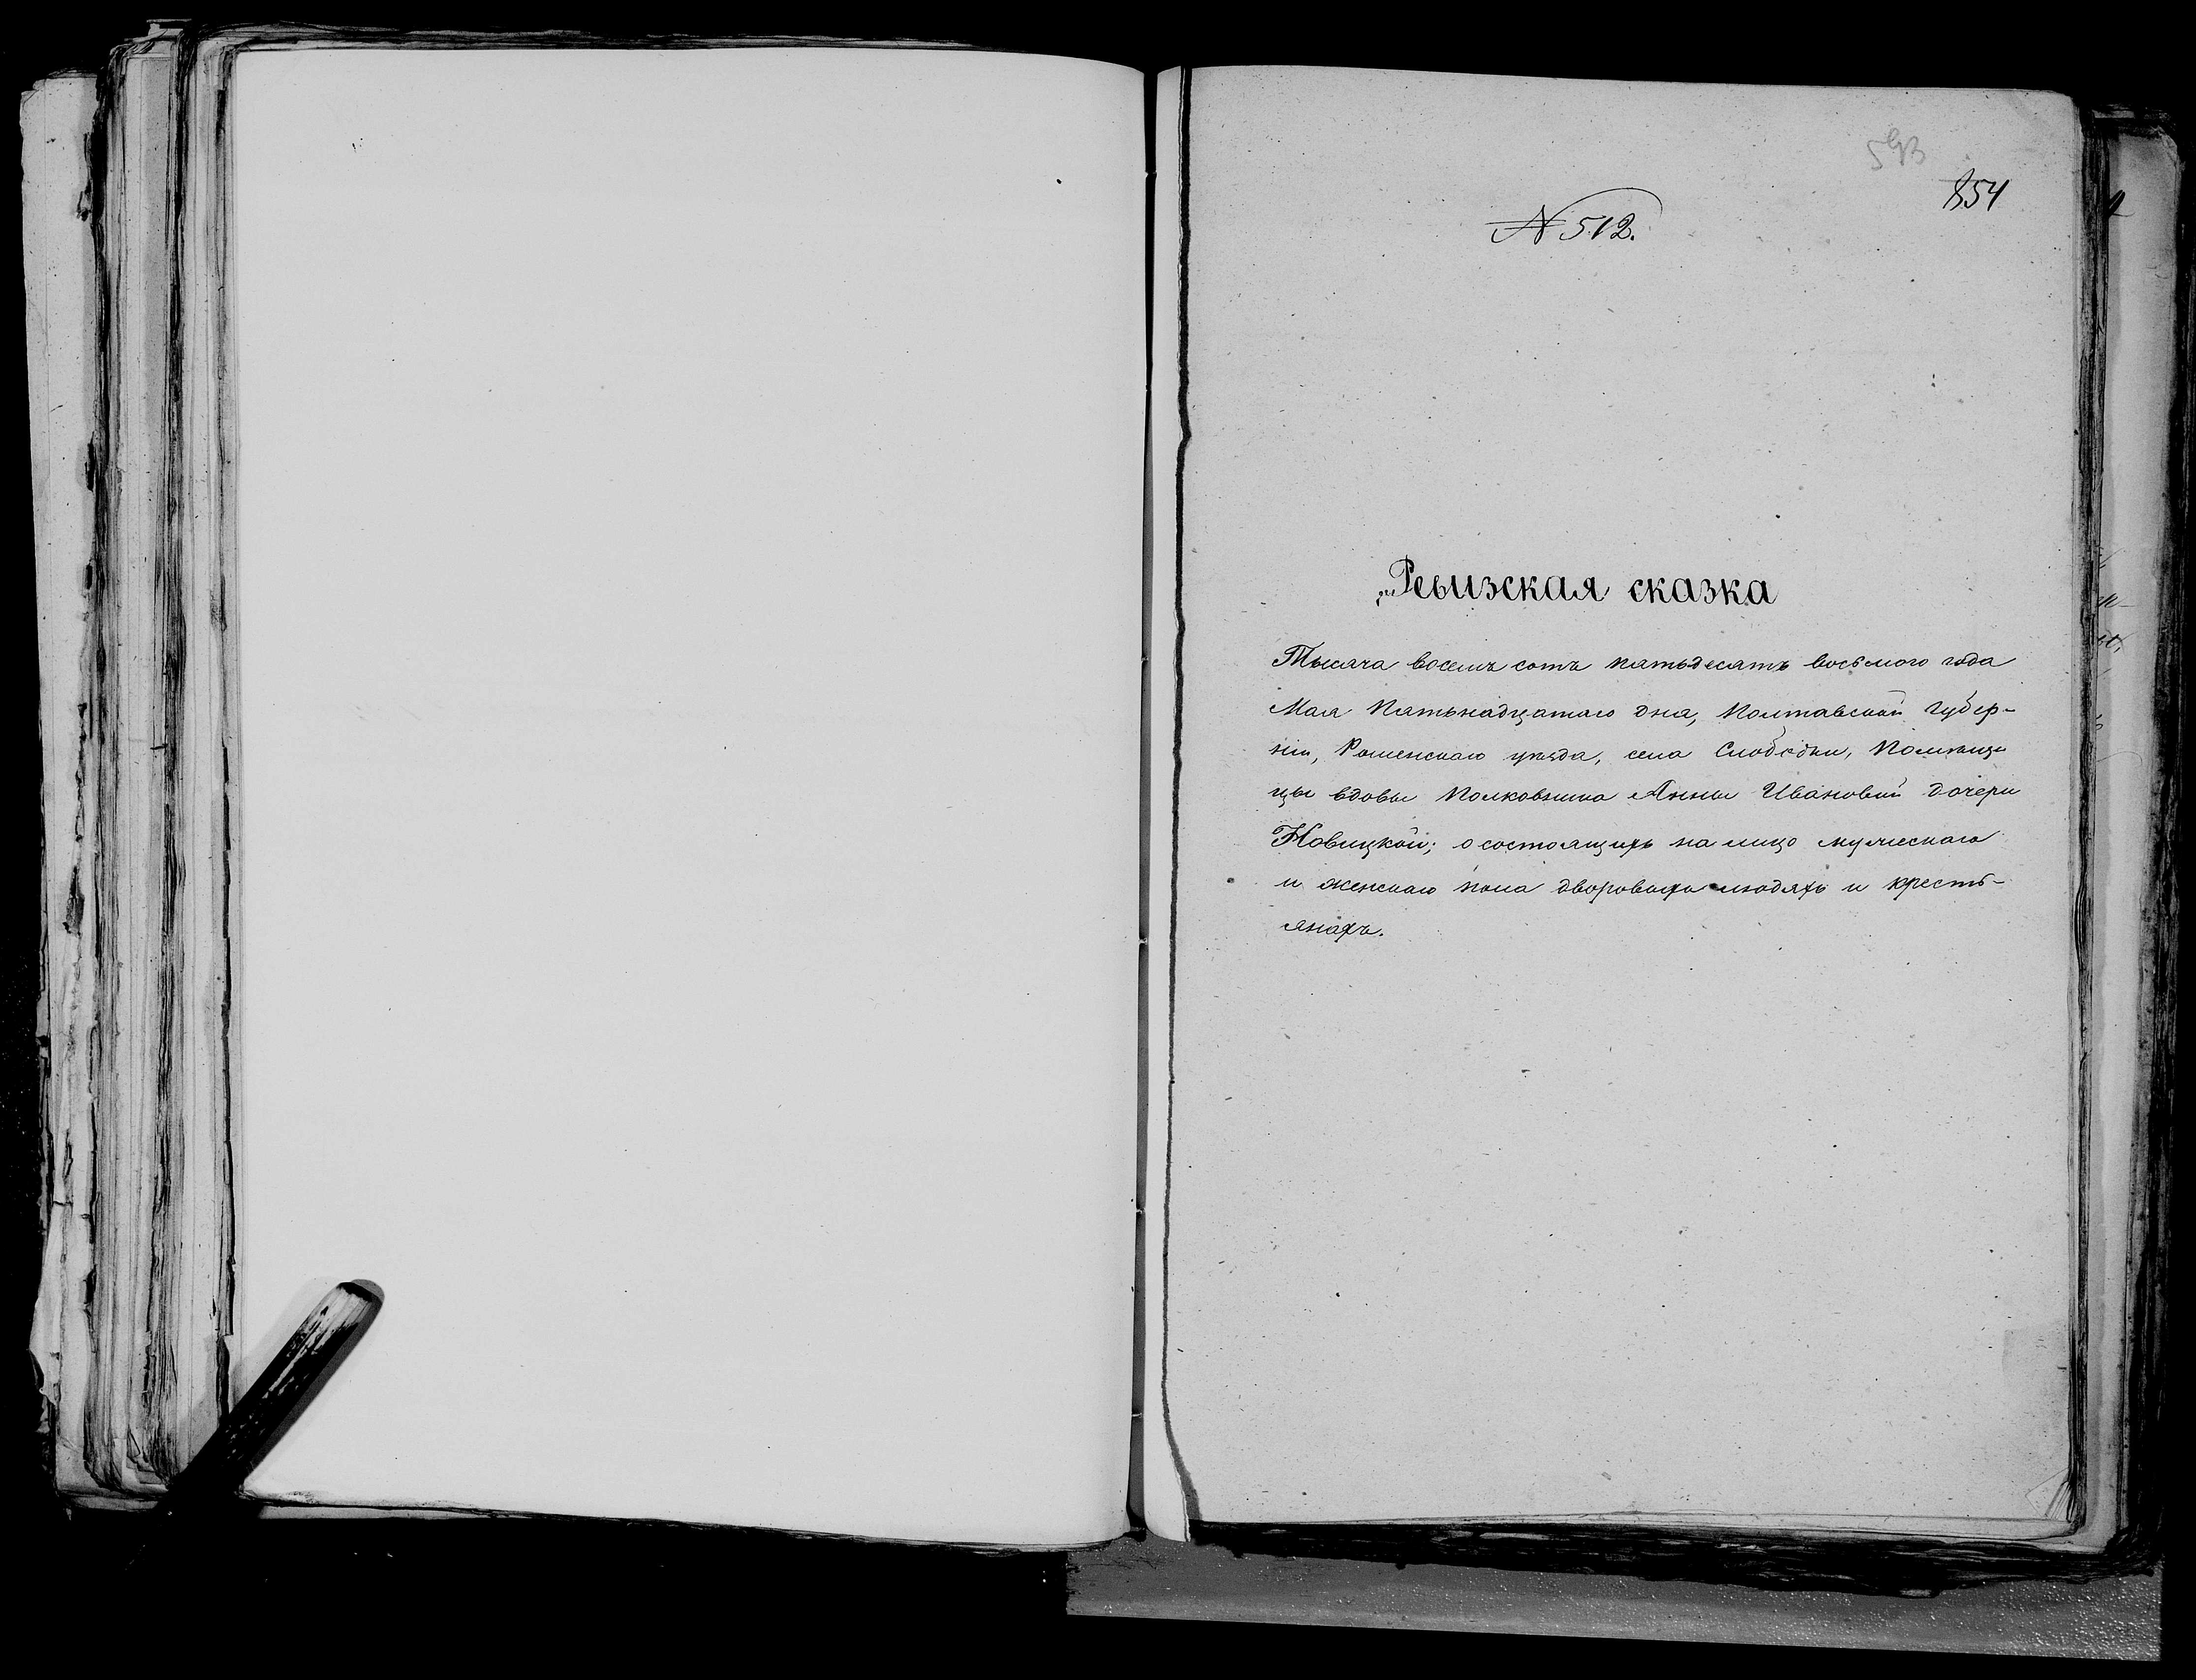 854
N 512.
Ревизская сказка
Тысяча восемь сотъ пятьдесятъ восьмого года
Мая пятьнадцатаго дня, Полтавской губер-
ніи, Роменскаго уѣзда, села Слободки, Помѣщи
цы вдовы Полковника Анны Ивановой дочери
Новицкой; о состоящихъ на лицо мужескаго
и женскаго пола дворовыхъ людяхъ и кресть-
янахъ.